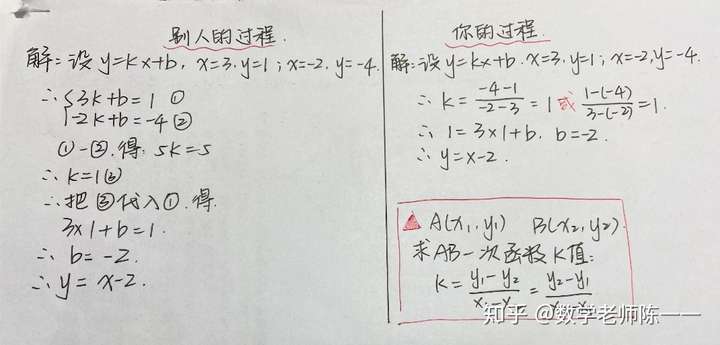 别人的过程.
解:设y=kx+b, x=3.y=1; x=-2. y=-4.
∴{3k+b=1 ①
-2k+b=-4②
①-②.得: 5k=5
∴k=1③
∴把③代入①.得.
3×1+b=1.
∴b=-2.
∴y= x-2.
你的过程.
解:设y=kx+b. x=3.y=1; x=-2,y=-4.
∴k= -4-1/-2-3 =1 或 1-(-4)/3-(-2) =1.
∴1=3×1+b. b=-2.
∴y=x-2.
▲ A(x₁,y₁) B(x₂,y₂).
求AB一次函数K值:
K= y₁-y₂/x₁- = y₂-y₁/
知乎 @数学老师陈一一